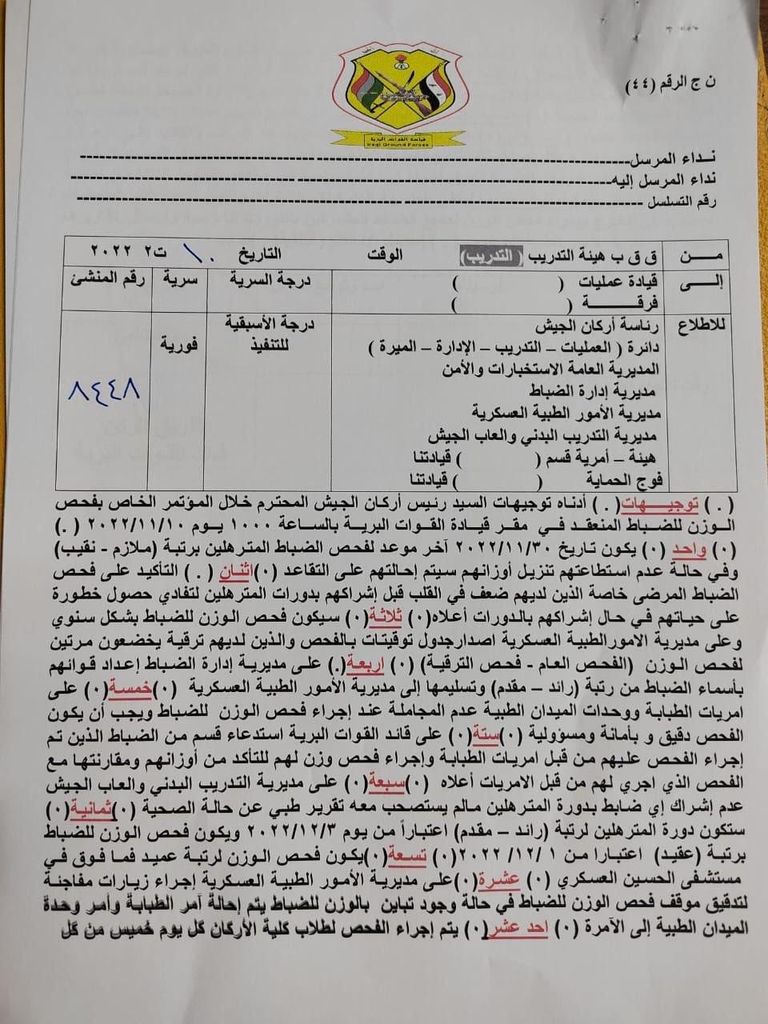 ن ج الرقم (٤٤)
قيادة القوات البرية
Iraqi Ground Forces
نـداء المرسل
نداء المرسل إليه
رقم التسلسل
مــن
ق ق ب هيئة التدريب (التدريب)
الوقت
التاريخ ١٠ ت٢ ٢٠٢٢
إلــى
قيادة عمليات ( )
فرقــة ( )
درجة السرية
سرية
رقم المنشئ
للاطلاع
رئاسة أركان الجيش
دائرة ( العمليات – التدريب – الإدارة – الميرة )
المديرية العامة الاستخبارات والأمن
مديرية إدارة الضباط
مديرية الأمور الطبية العسكرية
مديرية التدريب البدني والعاب الجيش
هيئة – أمرية قسم ( ) قيادتنا
فوج الحماية ( ) قيادتنا
درجة الأسبقية
للتنفيذ
فورية
٨٤٤٨
( . ) توجيـــهات( . ) أدناه توجيهات السيد رئيس أركان الجيش المحترم خلال المؤتمر الخاص بفحص
الـوزن للضباط المنعقد في مقر قيادة القوات البرية بالساعة ١٠٠٠ يـوم ٢٠٢٢/١١/١٠ ( . )
(٠) واحد (٠) يكون تاريخ ٢٠٢٢/١١/٣٠ آخر موعد لفحص الضباط المترهلين برتبة (ملازم - نقيب)
وفي حالة عدم استطاعتهم تنزيل أوزانهم سيتم إحالتهم على التقاعد (٠)اثنان ( . ) التأكيد على فحص
الضباط المرضى خاصة الذين لديهم ضعف في القلب قبل إشراكهم بدورات المترهلين لتفادي حصول خطورة
على حياتهم في حال إشراكهم بالدورات أعلاه(٠) ثلاثة(٠) سيكون فحص الوزن للضباط بشكل سنوي
وعلى مديرية الامورالطبية العسكرية اصدارجدول توقيتات بالفحص والذين لديهم ترقية يخضعون مرتين
لفحص الـوزن (الفحص العام - فحص الترقية) (٠) اربعة(.) على مديرية إدارة الضباط إعداد قوائهم
بأسماء الضباط من رتبة (رائد – مقدم) وتسليمها إلى مديرية الأمور الطبية العسكرية (٠)خمسة(٠) على
امريات الطبابة ووحدات الميدان الطبية عدم المجاملة عند إجراء فحص الوزن للضباط ويجب أن يكون
الفحص دقيق و بأمانة ومسؤولية (٠)ستة(٠) على قائد القوات البرية استدعاء قسم من الضباط الذين تم
إجراء الفحص عليهم من قبل امريات الطبابة وإجراء فحص وزن لهم للتأكد من أوزانهم ومقارنتها مع
الفحص الذي اجري لهم من قبل الامريات أعلاه (٠)سبعة(٠) على مديرية التدريب البدني والعاب الجيش
عدم إشراك إي ضابط بدورة المترهلين مالم يستصحب معه تقرير طبي عن حالة الصحية (٠)ثمانية(٠)
ستكون دورة المترهلين لرتبة (رائد – مقدم) اعتباراً من يوم ٢٠٢٢/١٢/٣ ويكون فحص الوزن للضباط
برتبة (عقيد) اعتبارا من ١ /١٢/ ٢٠٢٢(٠) تسعة(٠)يكون فحص الوزن لرتبة عميد فما فوق في
مستشفى الحسين العسكري (٠) عشرة(٠)على مديرية الأمور الطبية العسكرية إجراء زيارات مفاجئة
لتدقيق موقف فحص الوزن للضباط في حالة وجود تباين بالوزن للضباط يتم إحالة آمر الطبابة وأمر وحدة
الميدان الطبية إلى الآمرة (٠) احد عشر(٠) يتم إجراء الفحص لطلاب كلية الأركان كل يوم خميس من كل